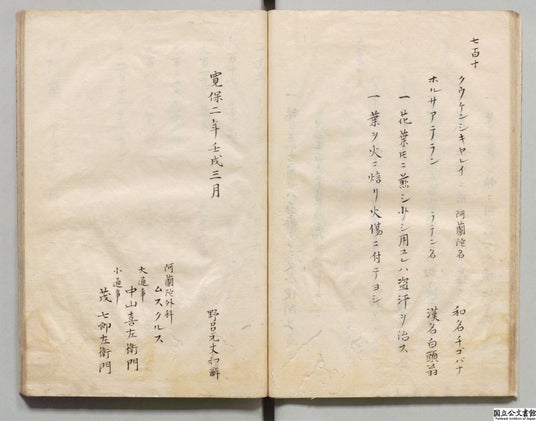 七百十
クウケンシキヤレイ 阿蘭陀名 和名チゴバナ
ホルサアテラン ラテン名 漢名白頭翁
一 花葉トモニ煎シ少シ用ユレハ盗汗ヲ治ス
一 葉ヲ火ニ焙リ火傷ニ付テヨシ
寛保二年壬戌三月
野呂元丈和解
阿蘭陀外科
ムスクルス
大通事
中山喜左衛門
小通事
茂七郎左衛門
国立公文書館
National Archives of Japan